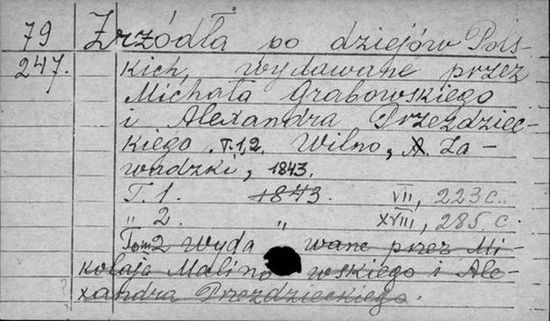 79 Zrzódła po dziejów Pols-
247. kich, wydawane przez
Michała Grabowskiego
i Alexandra Przezdziec-
kiego. T.1,2. Wilno, A. Za-
wadzki, 1843.
T. 1. 1843. VII, 223 c.
" 2. " XVIII, 285 c.
Tom 2 wydawane przez Mi-
kołaja Malinowskiego i Ale-
xandra Przezdzieckiego.